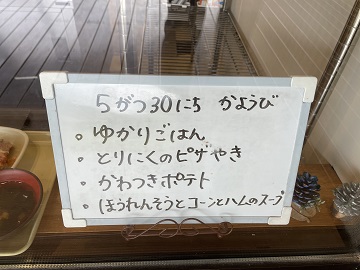 5がつ30にち かようび
。ゆかりごはん
。とりにくのピザやき
。かわつきポテト
。ほうれんそうとコーンとハムのスープ